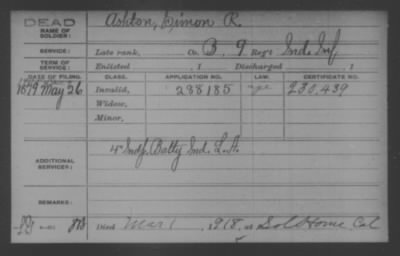 DEAD
NAME OF SOLDIER: Ashton, Simon R.
SERVICE: Late rank, Co. B, 9 Reg't Ind. Inf.
TERM OF SERVICE: Enlisted , 1 Discharged , 1
DATE OF FILING. CLASS. APPLICATION NO. LAW. CERTIFICATE NO.
1879 May 26 Invalid, 288185 230,439
Widow,
Minor,
ADDITIONAL SERVICES: 4" Indp. Batty Ind. L.A.
REMARKS:
Died Mar 1, 1918, at Sol Home, Cal